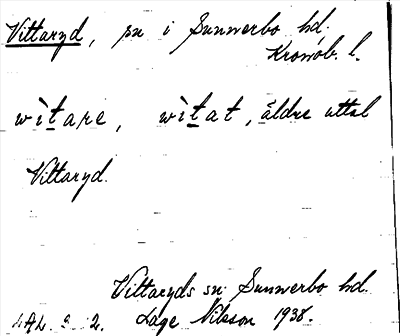 Vittaryd, sn i Sunnerbo hd.
Kronob. l.
wìtare, wìtat, äldre uttal
Vittaryd.
Vittaryds sn. Sunnerbo hd.
Lage Nilsson 1938.